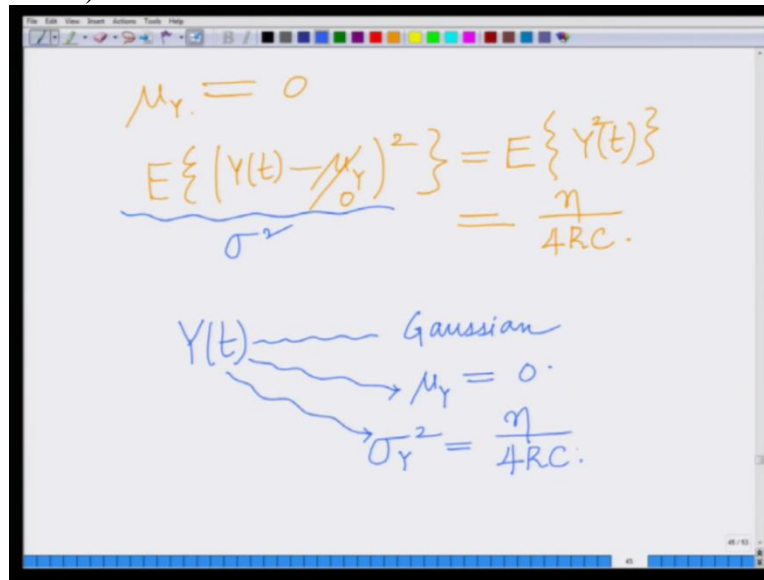 File Edit View Insert Actions Tools Help
B I
μ_Y = 0
E{(Y(t) - μ_Y)^2} = E{Y^2(t)}
0
σ^2
= η/4RC.
Y(t) Gaussian
μ_Y = 0.
σ_Y^2 = η/4RC.
45